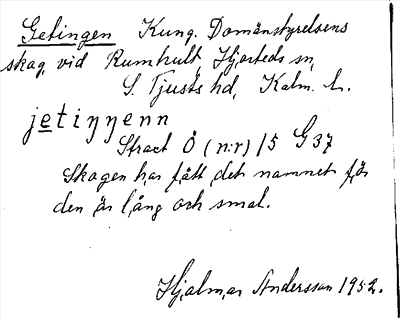 Getingen Kung. Domänstyrelsens
skog, vid Rumhult, Hjorteds sn,
S. Tjusts hd, Kalm. l.
jetiŋŋenn
Straxt Ö (n:r) 15 G 37
Skogen har fått det namnet för
den är lång och smal.
Hjalmar Andersson 1952.